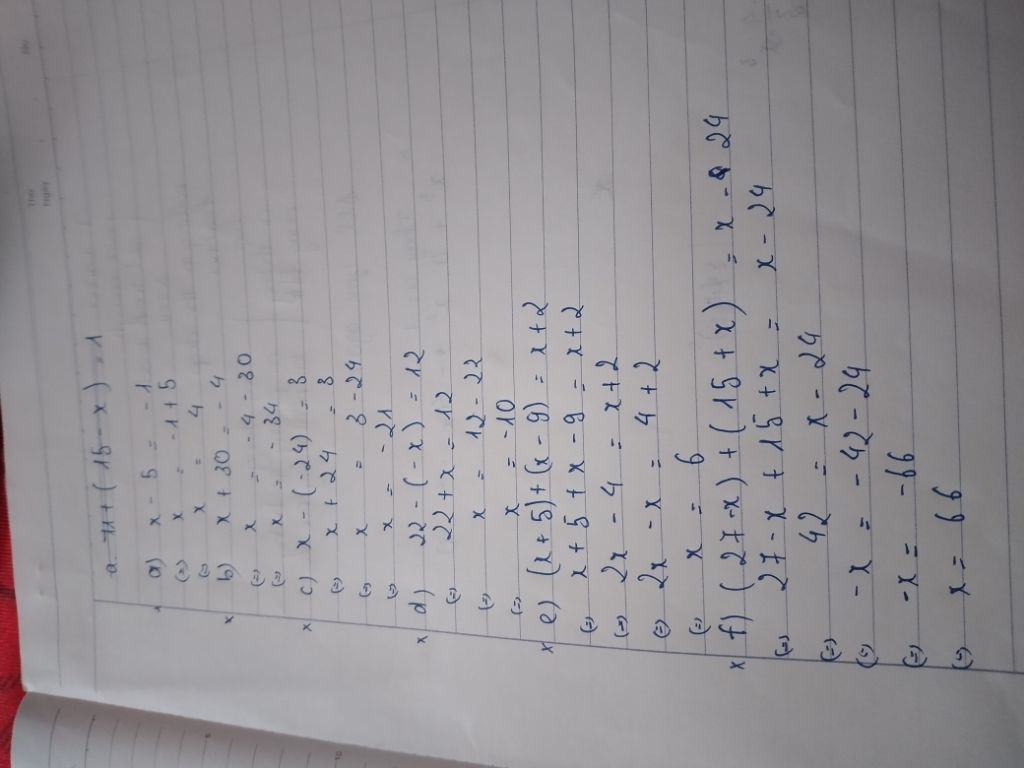 a. 71 + ( 15 - x ) = 1
a) x - 5 = - 1
(=) x = -1 + 5
(=) x = 4
x b) x + 30 = - 4
(=) x = - 4 - 30
(=) x = - 34
x c) x - (-24) = 3
(=) x + 24 = 3
(=) x = 3 - 24
(=) x = -21
x d) 22 - ( - x ) = 12
(=) 22 + x = 12
(=) x = 12 - 22
(=) x = -10
x e) (x + 5) + (x - 9) = x + 2
(=) x + 5 + x - 9 = x + 2
(=) 2x - 4 = x + 2
(=) 2x - x = 4 + 2
(=) x = 6
x f) ( 27 - x ) + ( 15 + x ) = x - 24
(=) 27 - x + 15 + x = x - 24
(=) 42 = x - 24
(=) - x = - 42 - 24
(=) - x = -66
(=) x = 66